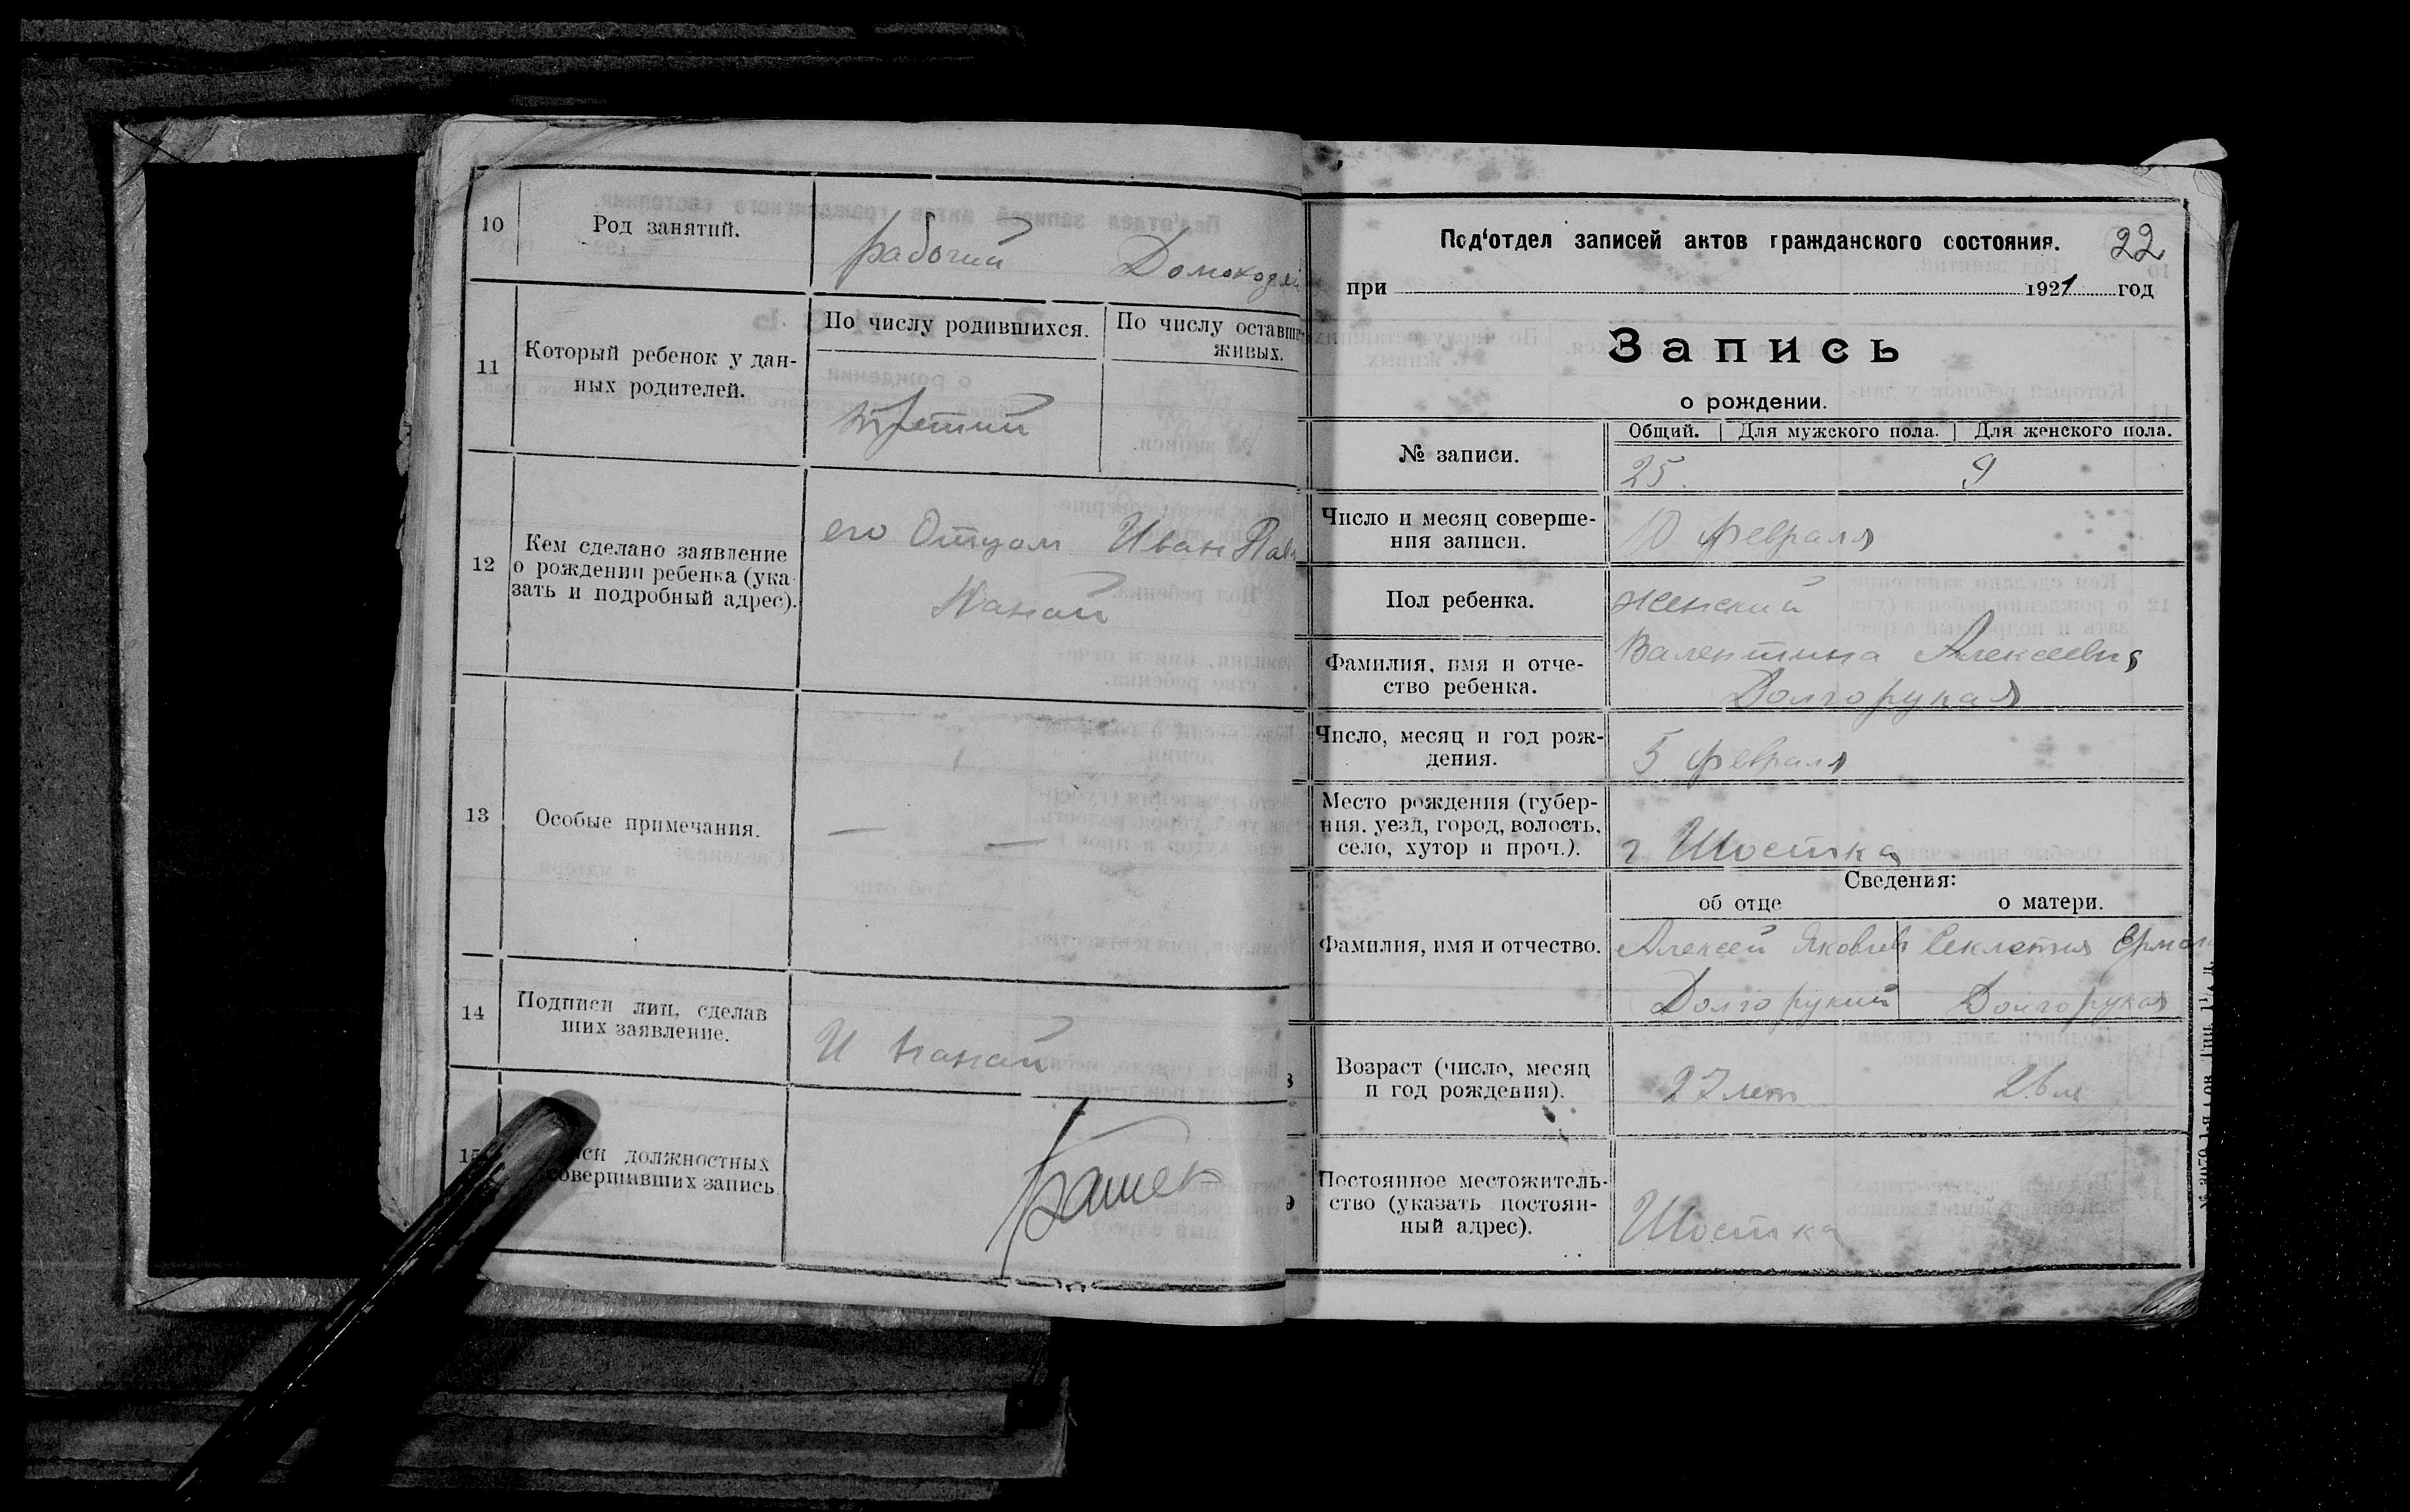 10
Род занятий.
рабочий
По числу родившихся.
По числу оставши-
живых.
11
Который ребенок у дан-
ных родителей.
третий
12
Кем сделано заявление
о рождении ребенка (ука-
зать и подробный адрес).
его Отцом Иван Пав
Нанай
13
Особые примечания.
—
—
14
Подписи лиц, сделав
ших заявление.
И Нанай
15
должностных
совершивших запись.
22
Под‘отдел записей актов гражданского состояния.
при 1921 год
Запись
о рождении.
Общий. Для мужского пола. Для женского пола.
№ записи.
25. 9
Число и месяц соверше-
ния записи.
10 февраля
Пол ребенка.
женский
Фамилия, имя и отче-
ство ребенка.
Валентина Алексеевна
Долгорукая
Число, месяц и год рож-
дения.
5 февраля
Место рождения (губер-
ния, уезд, город, волость,
село, хутор и проч.).
г Шостка
Сведения:
об отце о матери.
Фамилия, имя и отчество.
Алексей Яковлев Секлетия Ермол
Долгорукий Долгорукая
8
Возраст (число, месяц
и год рождения).
27 лет 26 л
9
Постоянное местожитель-
ство (указать постоян-
ный адрес).
Шостка